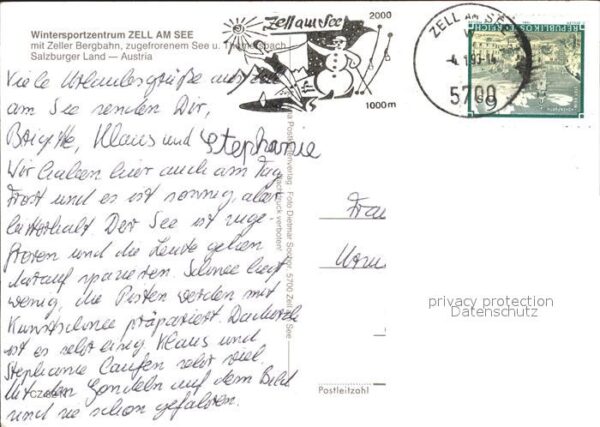 Wintersportzentrum ZELL AM SEE
mit Zeller Bergbahn, zugefrorenem See u. Thumersbach
Salzburger Land — Austria
Zell am See
2000
1000 m
ZELL AM SEE
5700
REPUBLIK ÖSTERREICH
Viele Urlaubsgrüße aus Zell
am See senden Dir,
Brigitte, Klaus und Stephanie
Wir haben hier auch am Tag
Frost und es ist sonnig, aber
bitterkalt. Der See ist zuge-
froren und die Leute gehen
darauf spazieren. Schnee liegt
wenig, die Pisten werden mit
Kunstschnee präpariert. Dadurch
ist es sehr eisig. Klaus und
Stephanie laufen sehr viel.
Mit den Gondeln auf dem Bild
sind sie schon gefahren.
Foto Dietmar Sochor, 5700 Zell am See
Nachdruck verboten!
Frau
Postleitzahl
privacy protection
Datenschutz